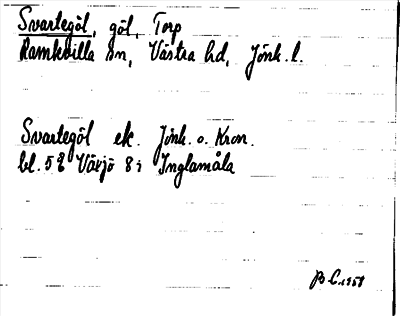 Svartegöl, göl, Torp
Ramkvilla sn, Västra hd, Jönk. l.
Svartegöl ek. Jönk. o. Kron.
bl. 52 Växjö 8i Inglamåla
B C. 1958